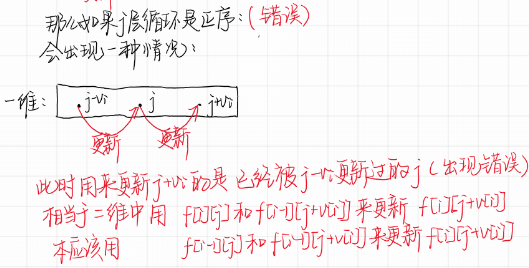 那么如果j层循环是正序:(错误)
会出现一种情况:
一维: j-vi j j+vi
更新 更新
此时用来更新j+vi的是已经被j-vi更新过的j(出现错误)
相当于二维中用 f[i][j]和f[i-1][j+v[i]]来更新 f[i][j+v[i]]
本应该用 f[i-1][j]和f[i-1][j+v[i]]来更新f[i][j+v[i]]